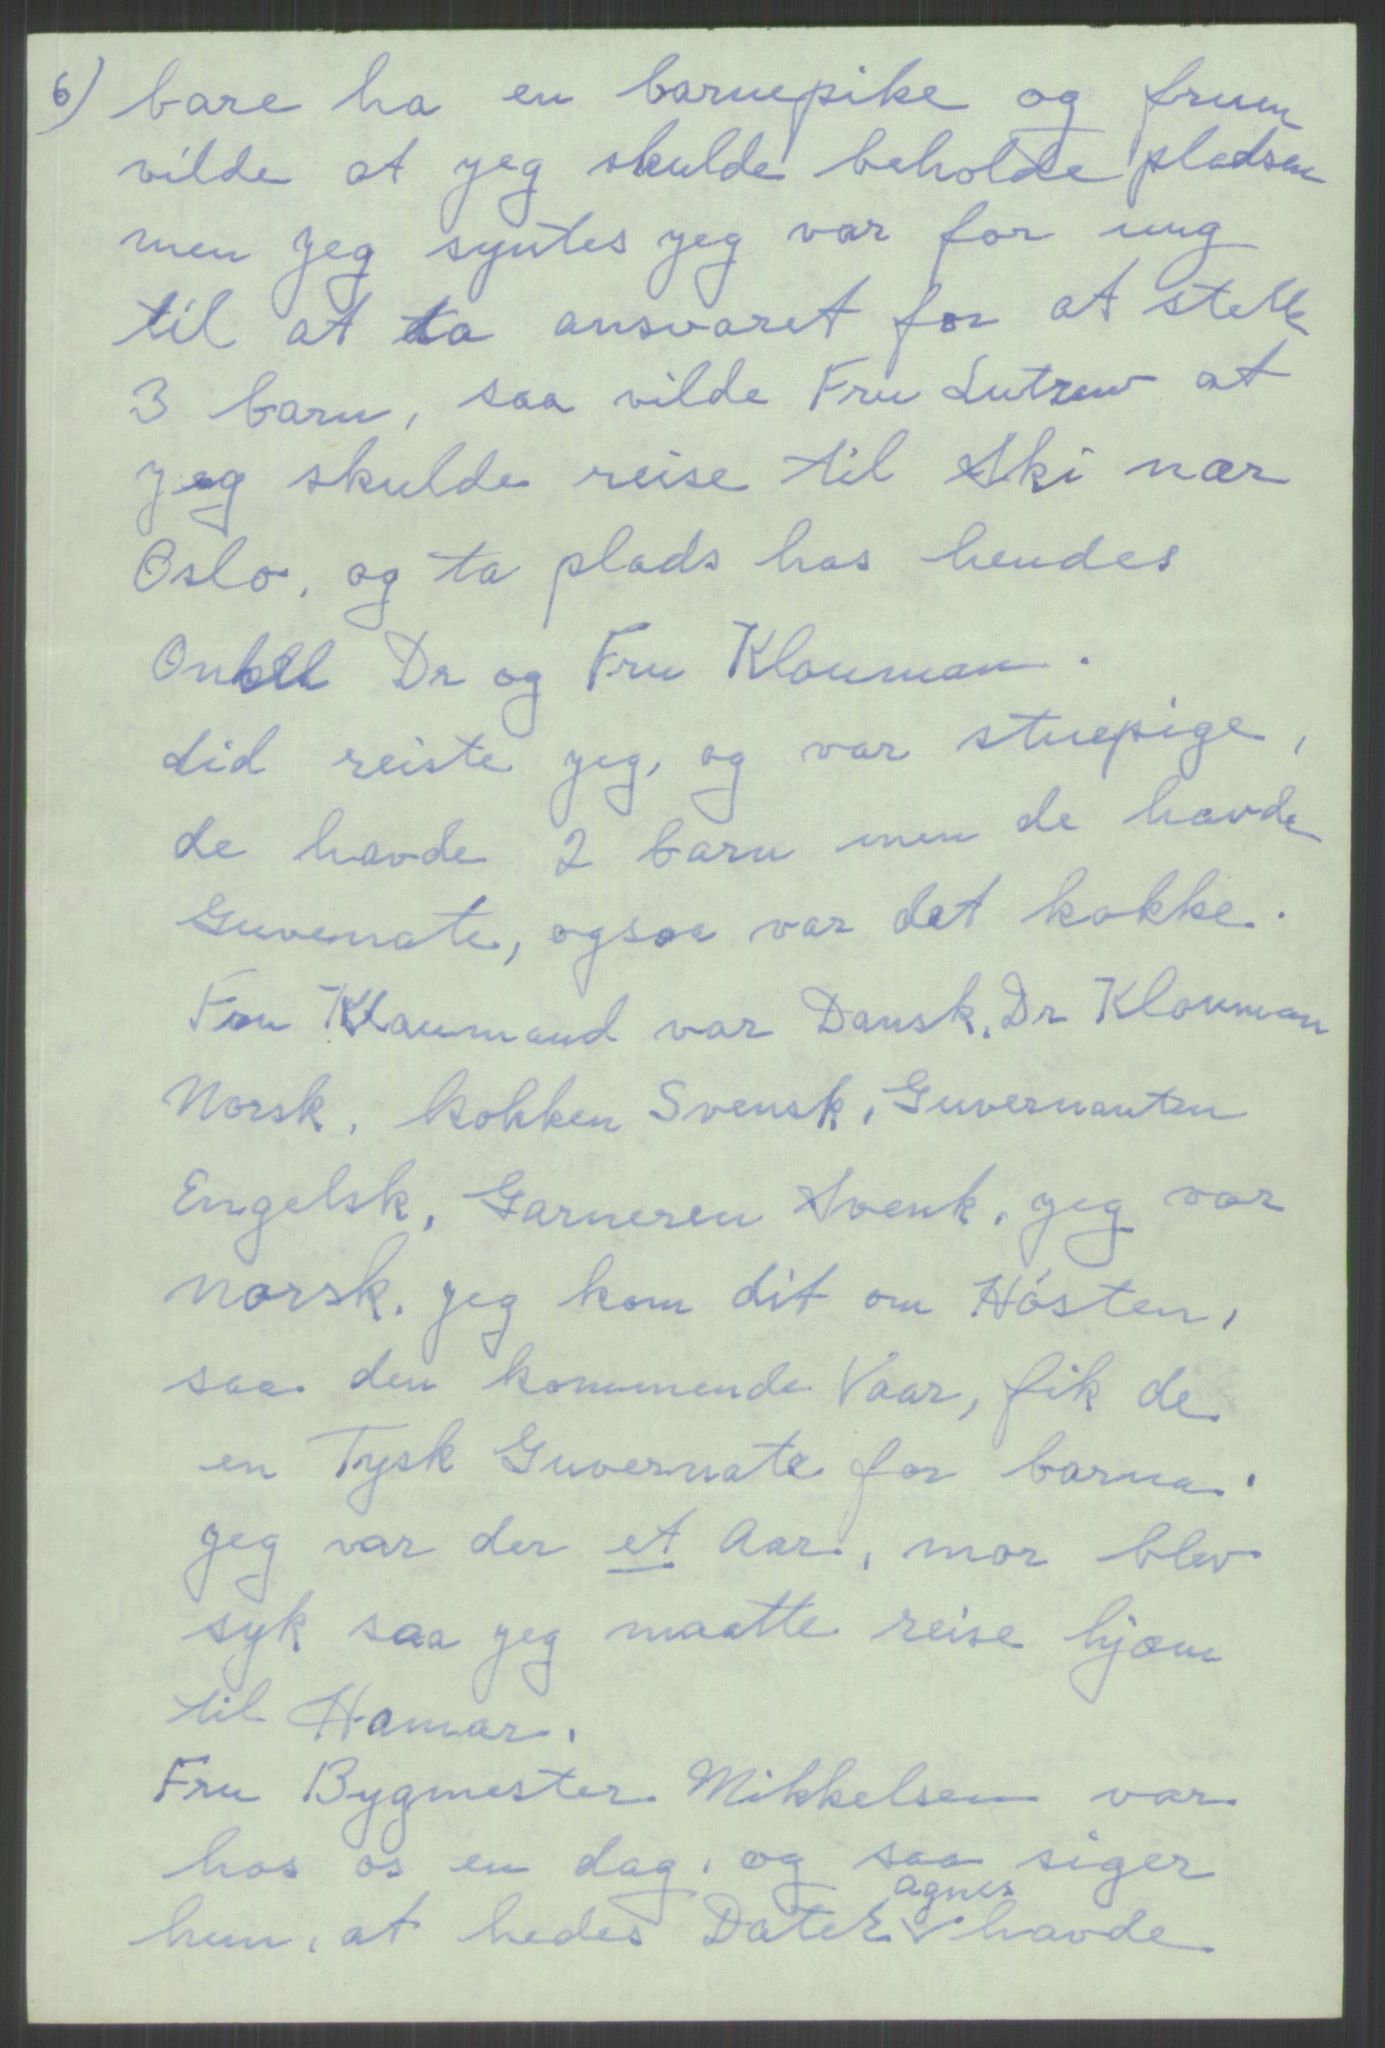 6) bare ha en barnepike og fruen
vilde at jeg skulde beholde pladsen
men jeg syntes jeg var for ung
til at ta ansvaret for at stelle
3 barn, saa vilde Fru Lutzow at
jeg skulde reise til Ski nær
Oslo, og ta plads hos hendes
Onkel Dr og Fru Klouman.
did reiste jeg, og var stuepige,
de havde 2 barn men de havde
Guvernate, ogsaa var det kokke.
Fru Kloumand var Dansk, Dr Klouman
Norsk, kokken Svensk, Guvernanten
Engelsk, Garneren Svenk, jeg var
norsk. jeg kom dit om Hósten,
saa den kommende Vaar, fik de
en Tysk Guvernate for barna.
jeg var der et Aar, mor blev
syk saa jeg maatte reise hjæm
til Hamar.
Fru Bygmester Mikkelsen var
hos os en dag, og saa siger
hun, at hedes Dater Agnes havde